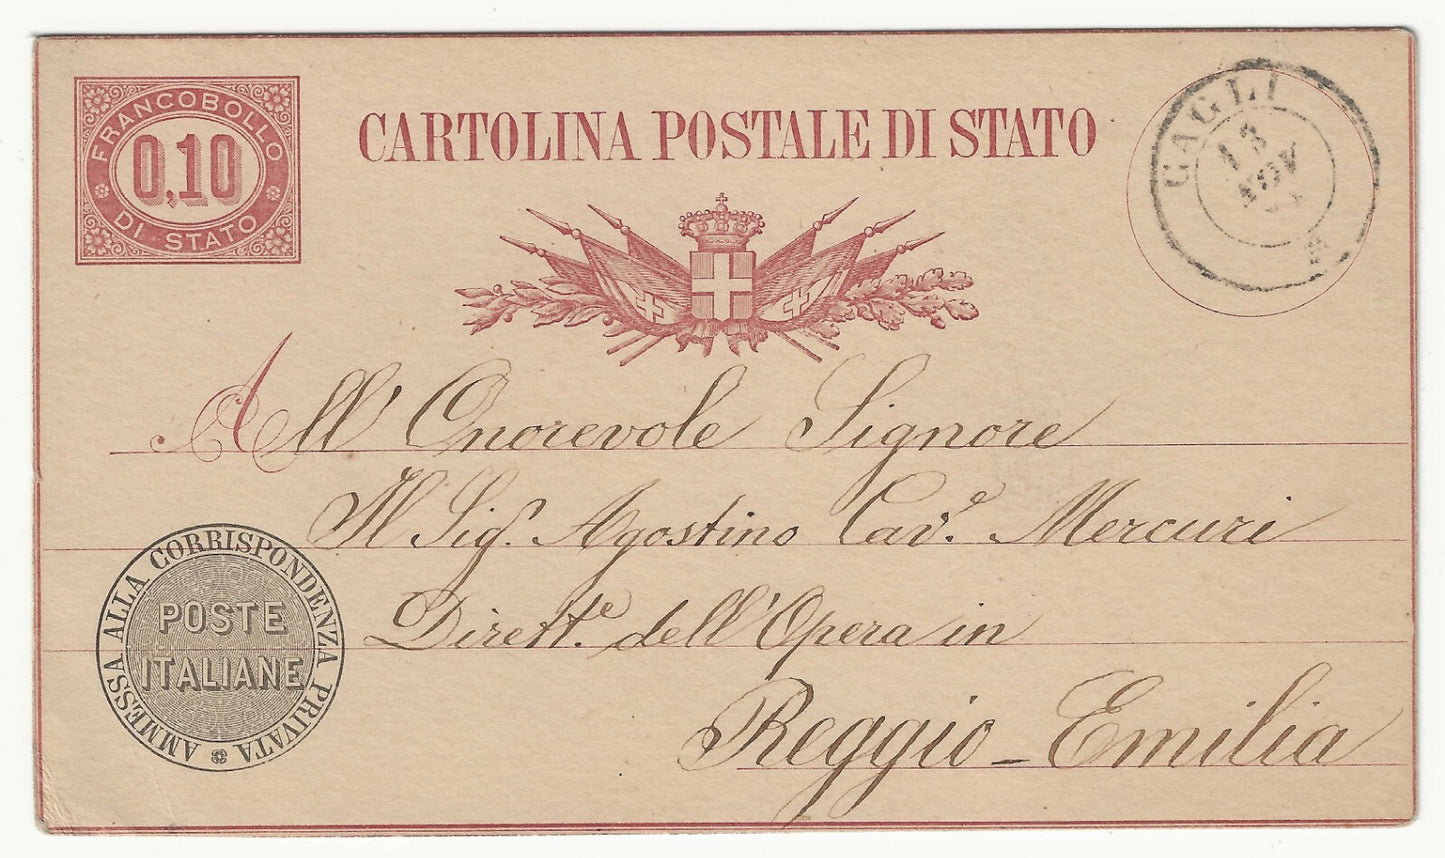 FRANCOBOLLO
0,10
DI STATO
CARTOLINA POSTALE DI STATO
CAGLI
13
NOV
All' Onorevole Signore
Il Sigr. Agostino Cave. Mercuri
Dirette. dell'Opera in
Reggio-Emilia
AMMESSA ALLA CORRISPONDENZA PRIVATA
POSTE
ITALIANE